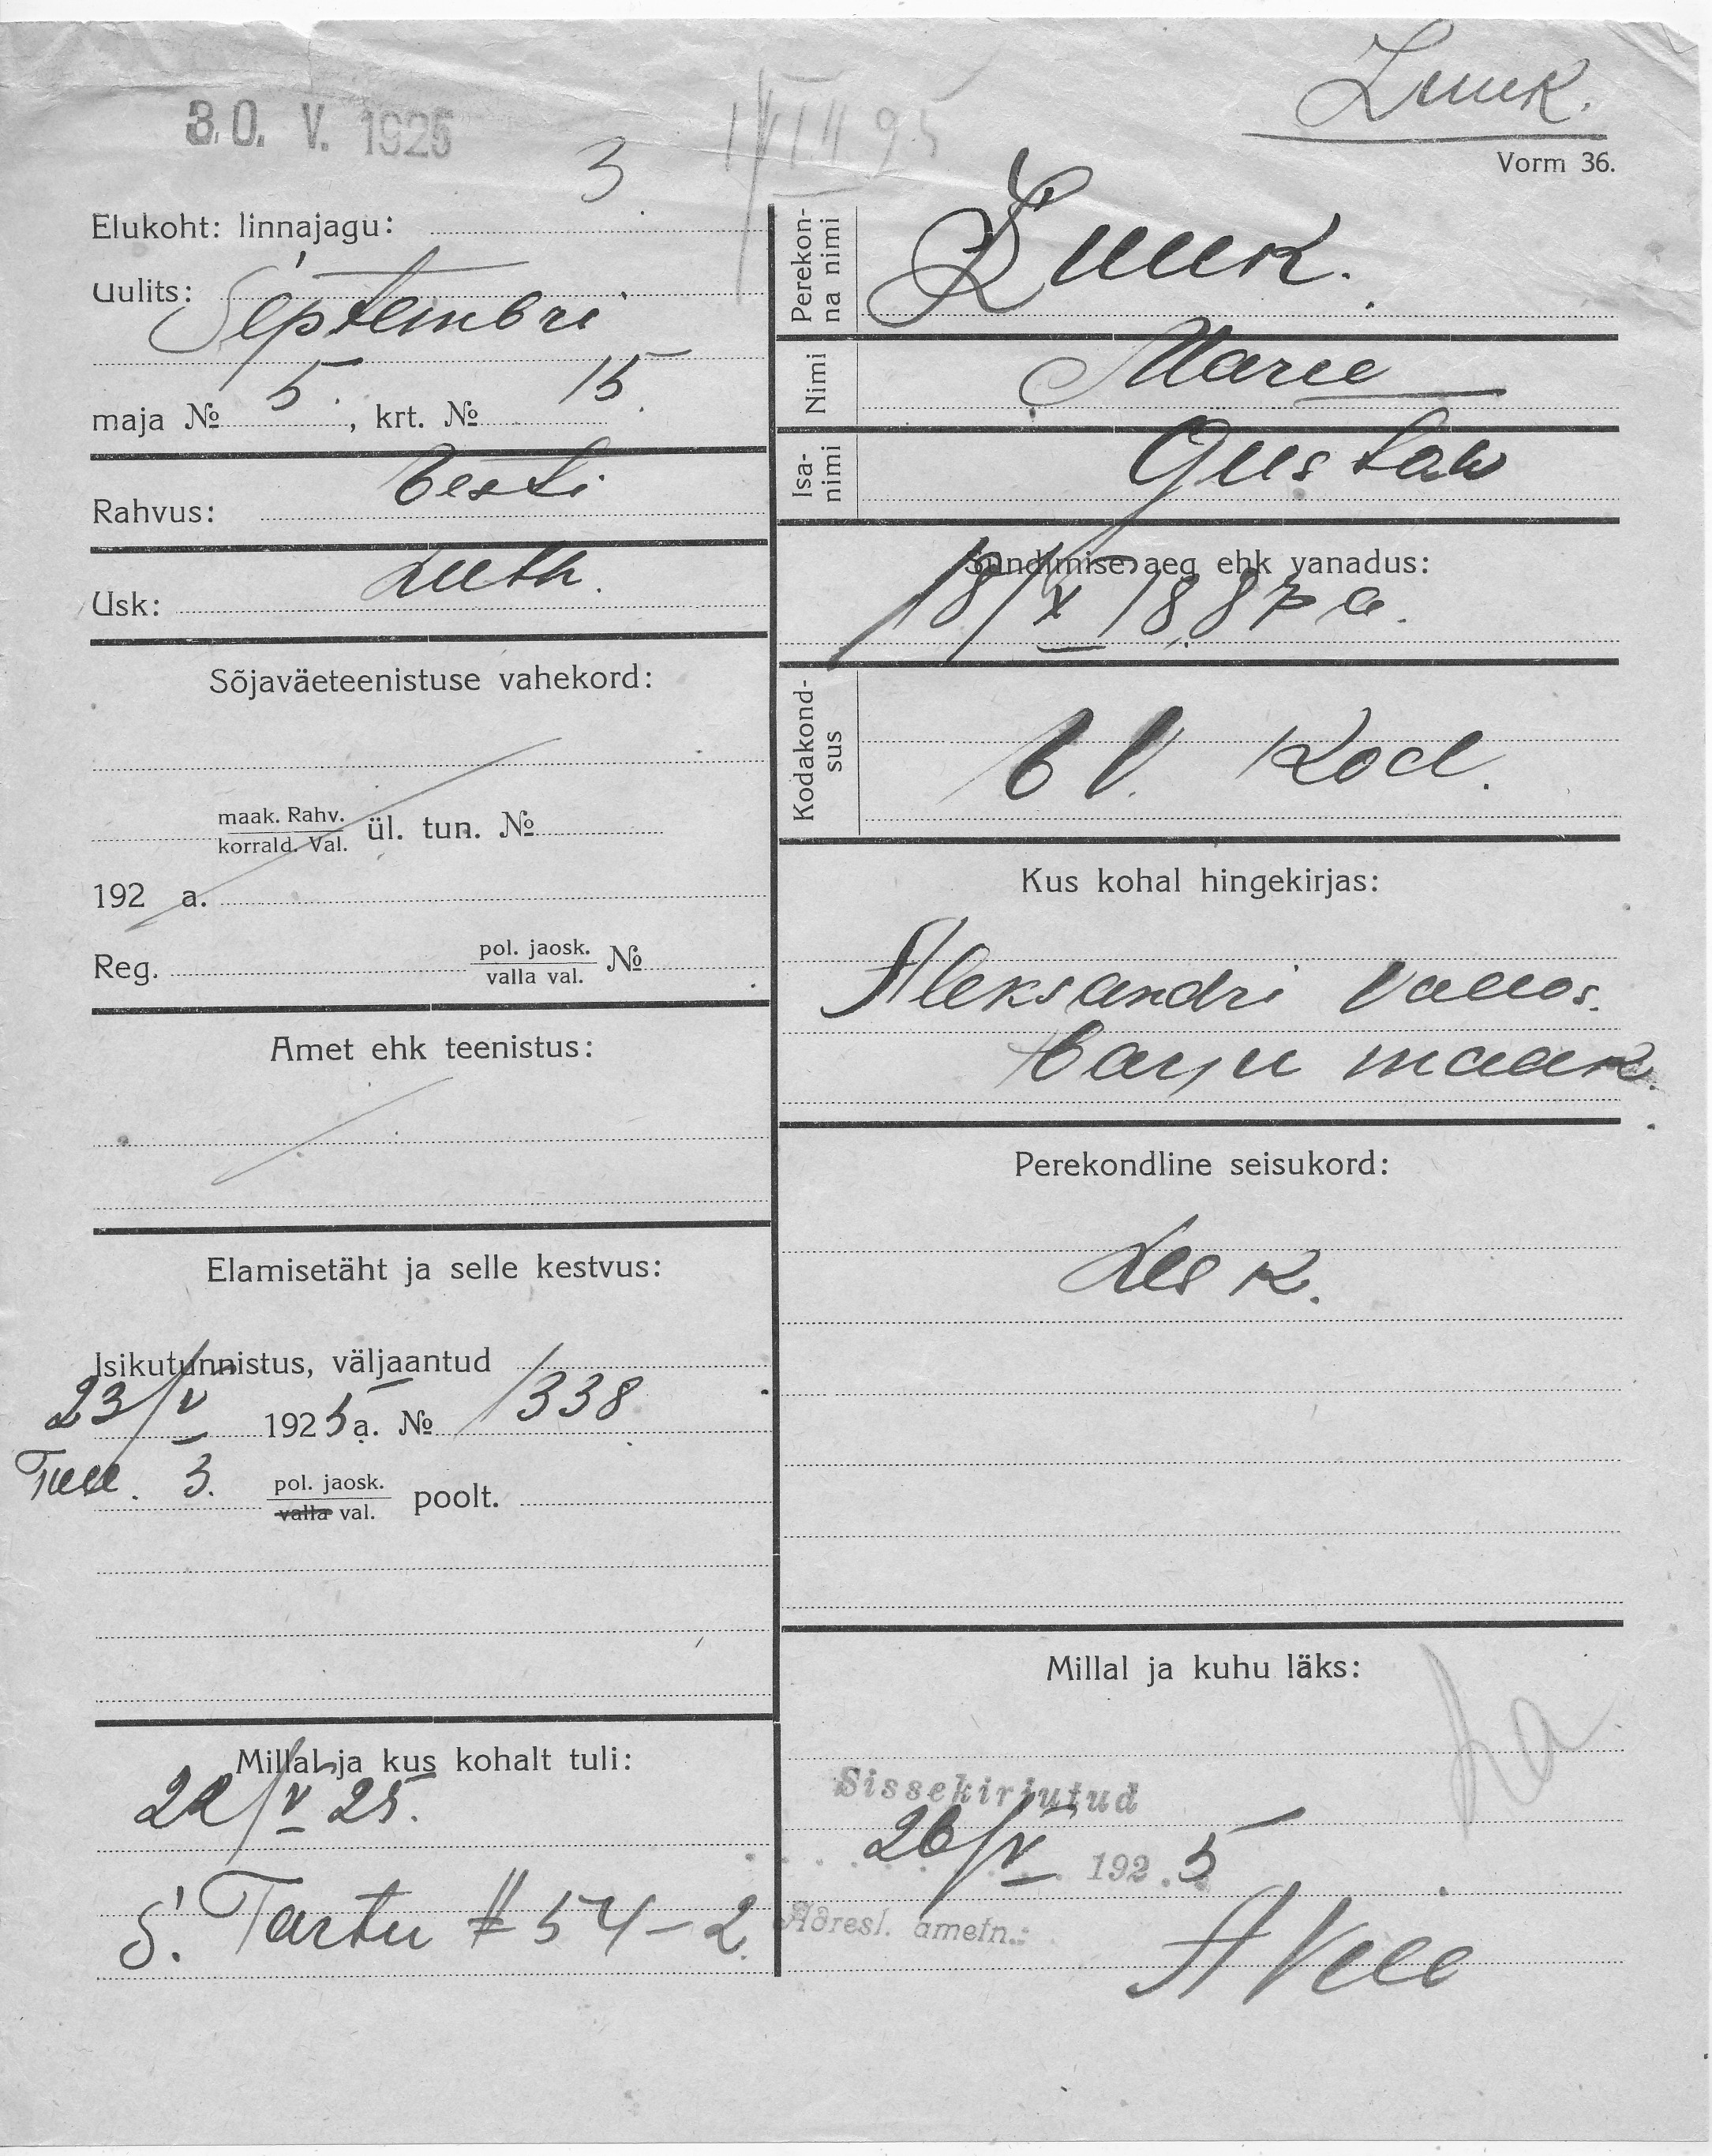 Luuk.
30. V. 1925
Vorm 36.
3
Elukoht: linnajagu:
Uulits: Septembri
maja № 5. , krt. № 15.
Rahvus: Eesti
Usk: Luth.
Sõjaväeteenistuse vahekord:
maak. Rahv.
korrald. Val. ül. tun. №
192 a.
Reg. pol. jaosk.
valla val. №
Amet ehk teenistus:
Elamisetäht ja selle kestvus:
Isikutunnistus, väljaantud
23/V 1925 a. № 1338
Tall. 3. pol. jaosk.
valla val. poolt.
Millal ja kus kohalt tuli:
22/V 25.
S. Tartu # 54-2.
Perekon-
na nimi Luuk.
Nimi Marie
Isa-
nimi Gustaw
Sündimise aeg ehk vanadus:
18/X 1887 a.
Kodakond-
sus E V. Kod.
Kus kohal hingekirjas:
Aleksandri vallas.
Harju maak.
Perekondline seisukord:
Lesk.
Millal ja kuhu läks:
Sissekirjutud
26/V 1925
Adresl. ametn.: